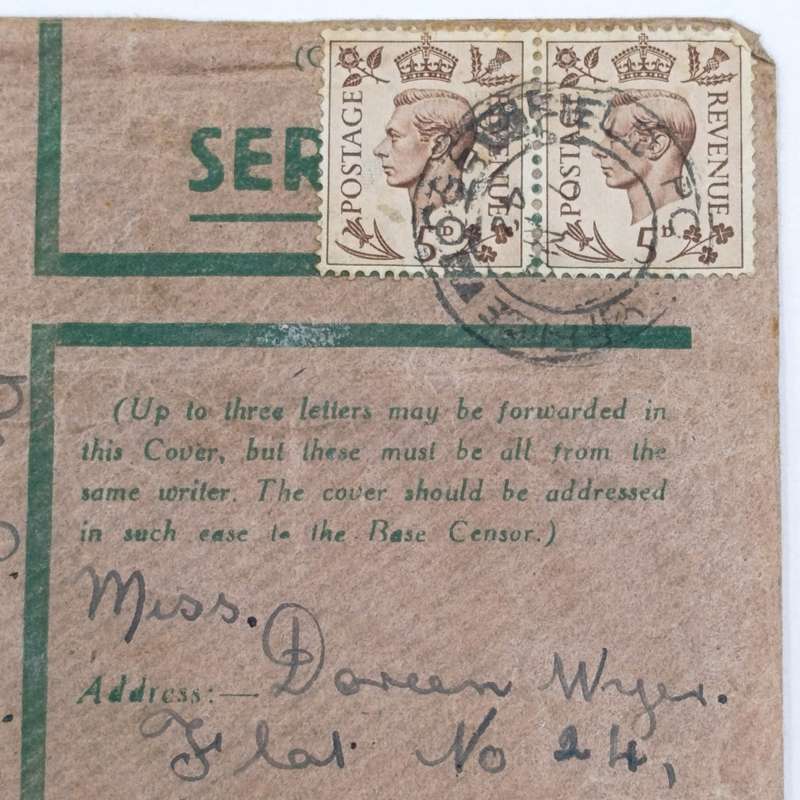 POSTAGE REVENUE 5D
POSTAGE REVENUE 5D
(Up to three letters may be forwarded in
this Cover, but these must be all from the
same writer. The cover should be addressed
in such case to the Base Censor.)
Miss.
Address:— Doreen Wyer.
Flat No 24,